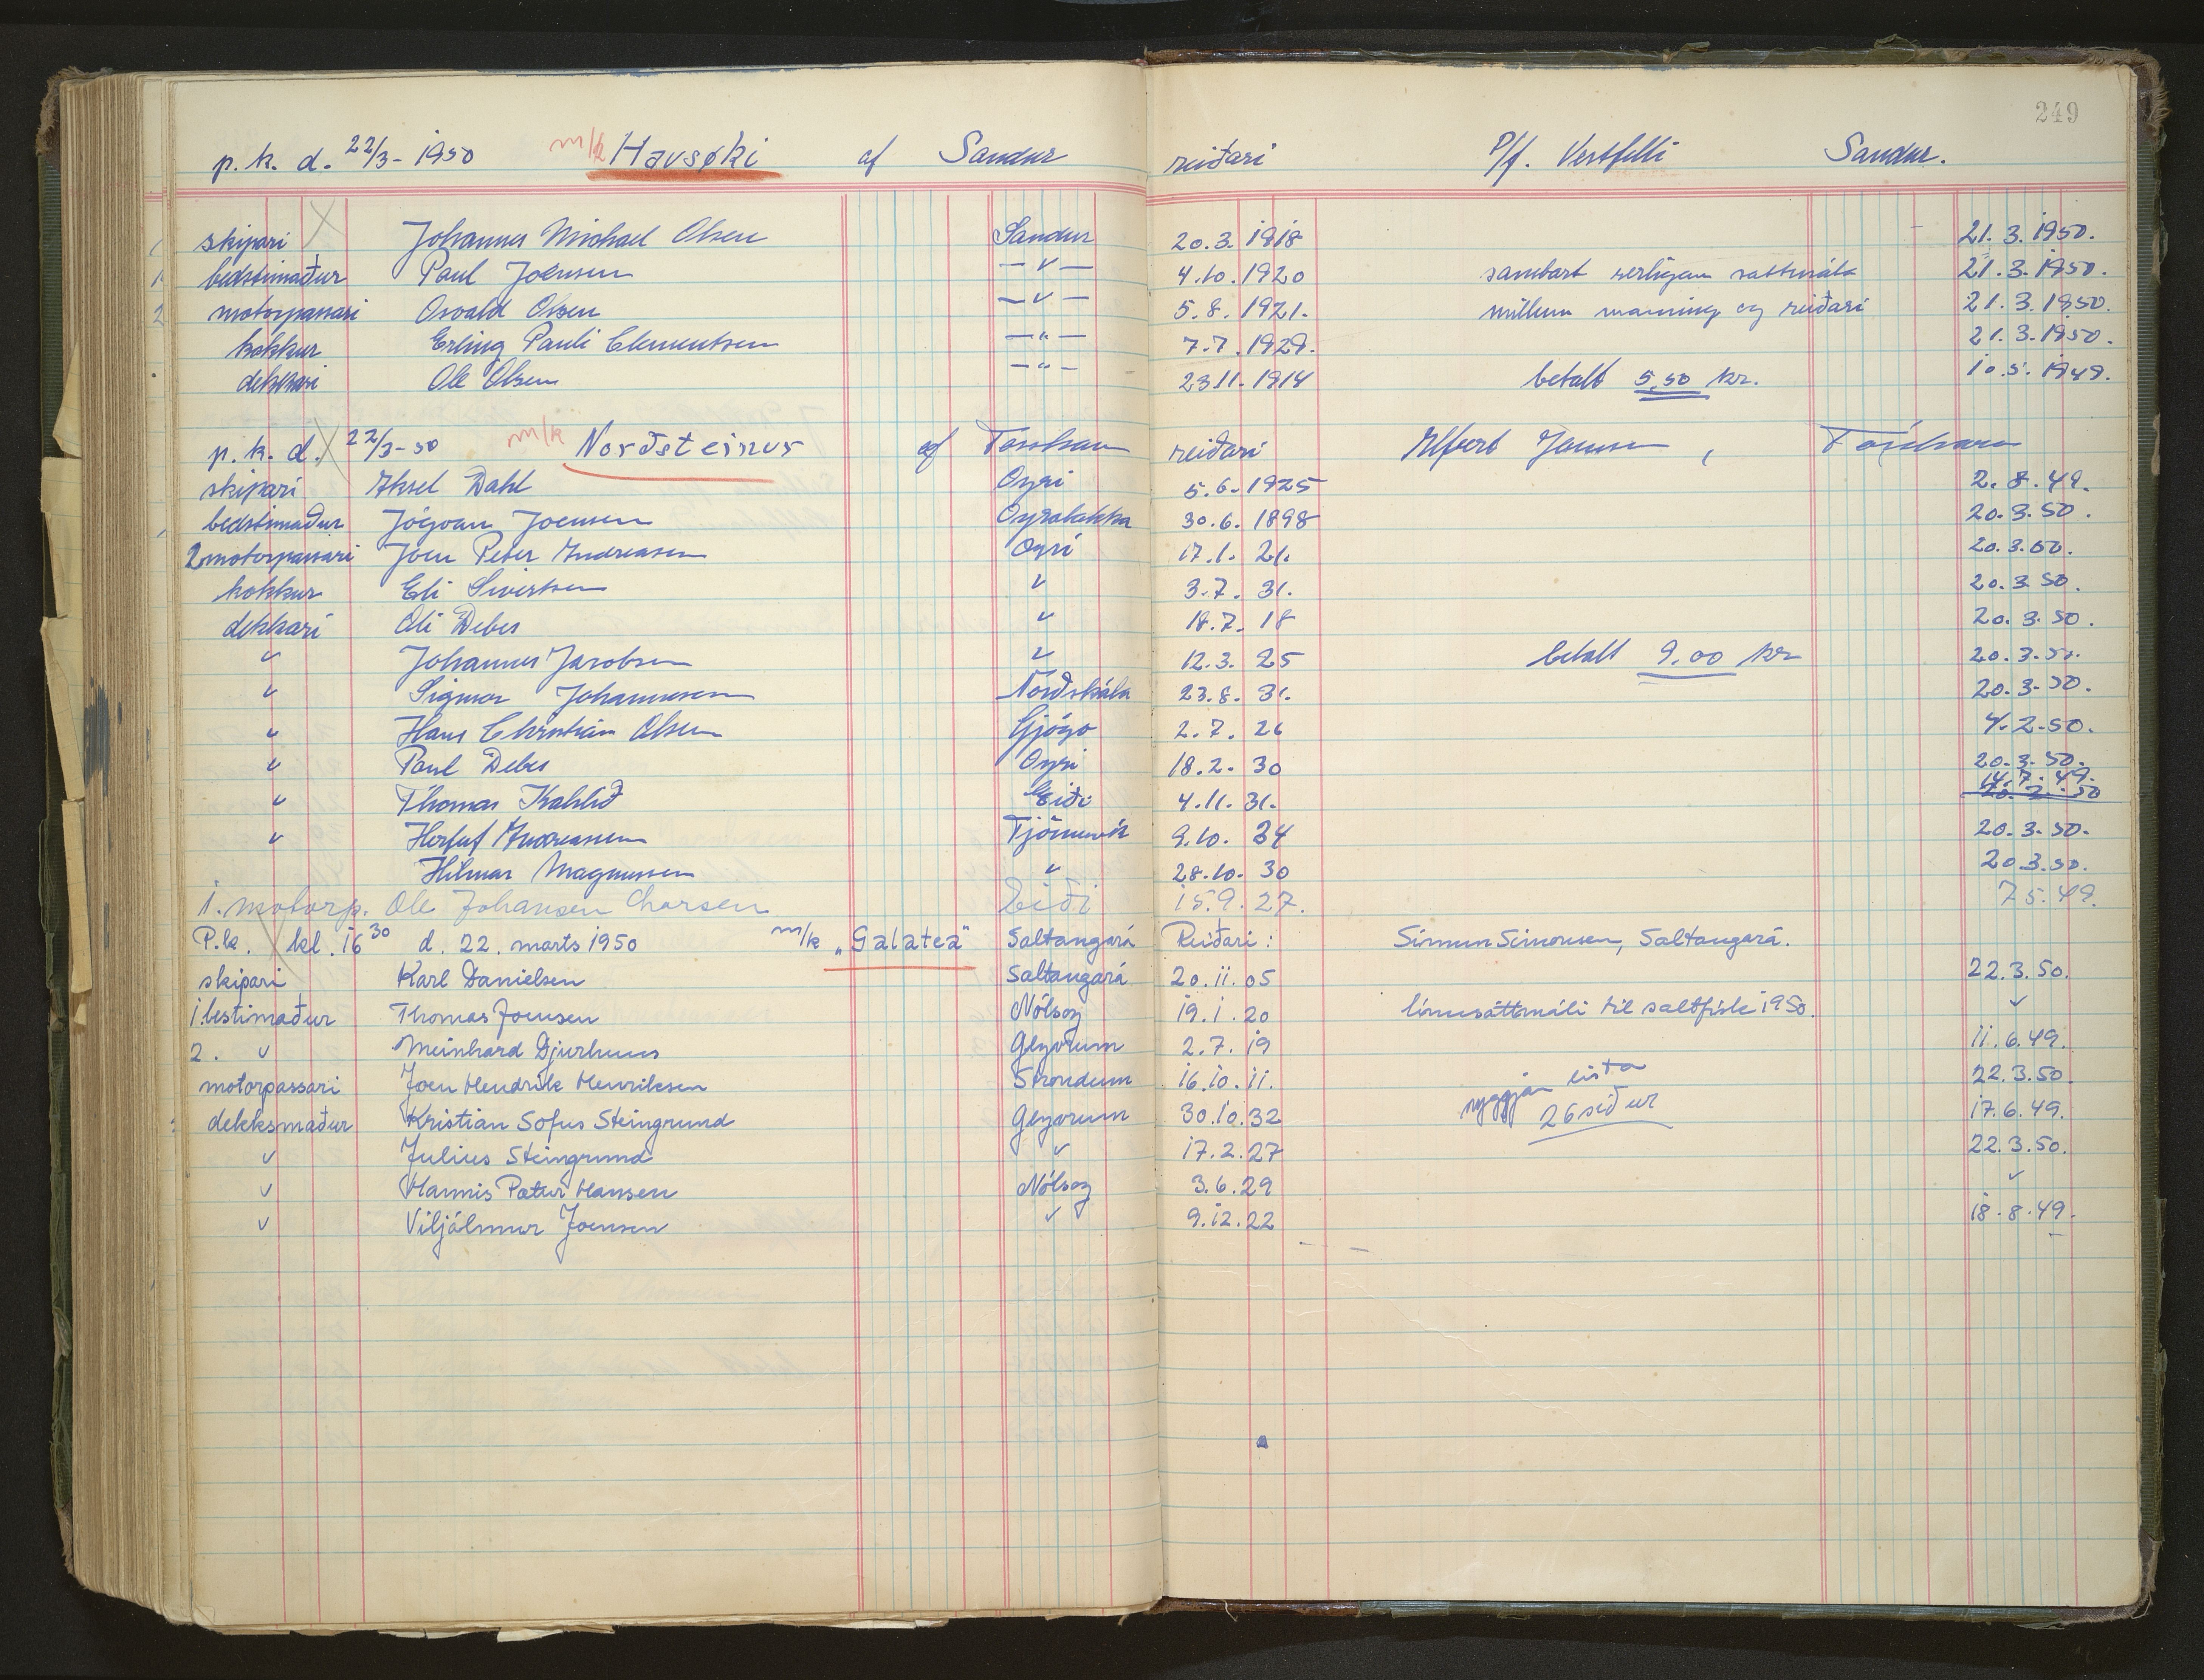 249
p. k. d. 22/3 - 1950 m/k Havsøki af Sandur reiðari P/f. Vestfelli Sandur.
skipari Johannes Michael Olsen Sandur 20.3.1918 21.3.1950.
1 bedstimaður Paul Joensen — v — 4.10.1920 sambart serligum sattmála 21.3.1950.
2 motorpassari Osvald Olsen — v — 5.8.1921. millum manning og reiðari 21.3.1950.
kokkur Erling Pauli Clementsen — " — 7.7.1929. 21.3.1950.
dekkari Ole Olsen — " — 23.11.1914 betalt 5,50 kr. 10.5.1949.
p. k. d. 22/3-50 m/k Norðsteinur af Torshavn reiðari Albert Joensen, Tórshavn
skipari Aksel Dahl Oyri 5.6.1925 2.8.49.
bedstimaður Jógvan Joensen Oyrabakka 30.6.1898 20.3.50.
2 motorpassari Joen Peter Andreasen Oyri 17.1.21. 20.3.50.
kokkur Eli Sivertsen v 3.7.31. 20.3.50.
dekkari Oli Debes v 18.7.18 20.3.50.
v Johannes Jacobsen v 12.3.25 betalt 9.00 kr 20.3.50.
v Sigmar Johannesen Norðskála 23.8.31. 20.3.50.
v Hans Christian Olsen Gjógv 2.7.26 4.2.50.
v Paul Debes Oyri 18.2.30 20.3.50.
14.7.49.
v Thomas Kahlið Eiði 4.11.31. 20.3.50
v Herluf Andreasen Tjörnuvík 9.10.34 20.3.50.
Hilmar Magnussen v 28.10.30 20.3.50.
1. motorp. Ole Johansen Eiði 15.9.27. 7.5.49.
P.k. kl. 16 30 d. 22. marts 1950 m/k "Galatea" Saltangará Reiðari: Simun Simonsen, Saltangará.
skipari Karl Danielsen Saltangará 20.11.05 22.3.50.
1. bestimaður Thomas Joensen Nólsoy 19.1.20 línusáttmáli til saltfisk 1950. v
2. v Meinhard Djurhuus Glyvrum 2.7.19 11.6.49.
motorpassari Joen Hendrik Henriksen Strondum 16.10.11. nyggjan lista 22.3.50.
dekksmaður Kristian Sofus Steingrund Glyvrum 30.10.32 26 síður 17.6.49.
v Julius Steingrund v 17.2.27 22.3.50.
v Hannis Pætur Hansen Nólsoy 3.6.29 v
v Viljálmur Joensen v 9.12.22 18.8.49.